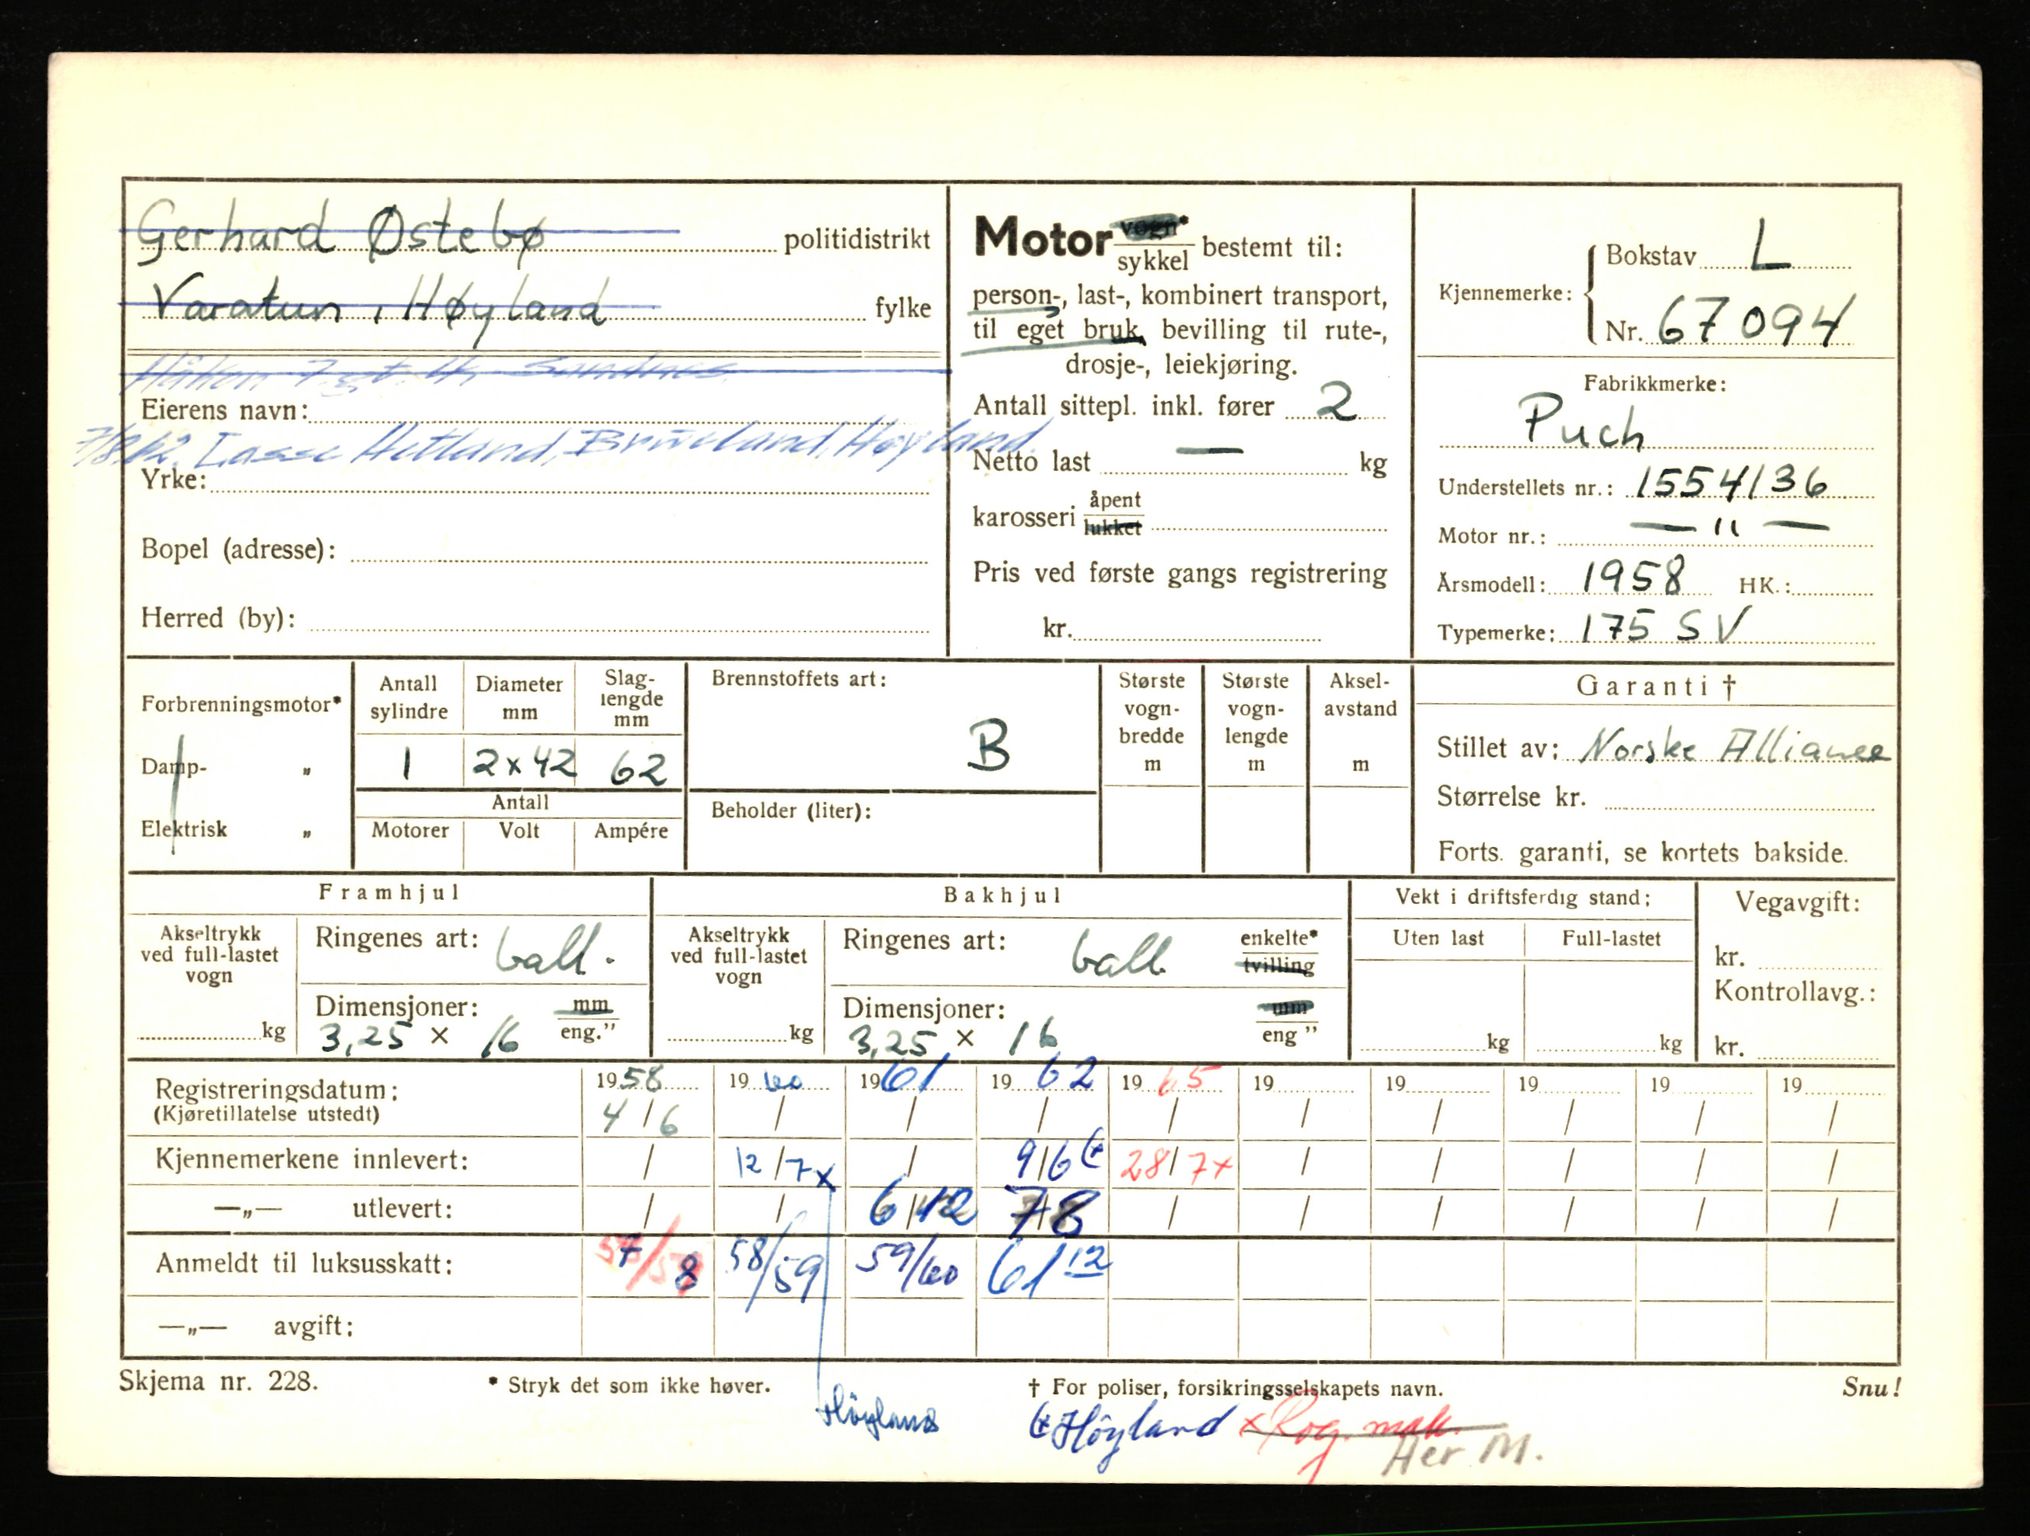 Gerhard Østebø politidistrikt
Varatun, Høyland fylke
Håkon
Eierens navn:
7/8 62. Lasse Hetland, Høyland.
Yrke:
Bopel (adresse):
Herred (by):
Motor vogn* sykkel bestemt til:
person-, last-, kombinert transport,
til eget bruk, bevilling til rute-,
drosje-, leiekjøring.
Antall sittepl. inkl. fører 2
Netto last — kg
karosseri åpent lukket
Pris ved første gangs registrering
kr.
Kjennemerke: Bokstav L
Nr. 67094
Fabrikkmerke:
Puch
Understellets nr.: 1554136
Motor nr.: — " —
Årsmodell: 1958 HK.:
Typemerke: 175 SV
Forbrenningsmotor*
Damp- „
Elektrisk „
Antall sylindre Diameter mm Slaglengde mm
1 2x42 62
Antall
Motorer Volt Ampére
Brennstoffets art:
B
Beholder (liter):
Største vogn-bredde m
Største vogn-lengde m
Aksel-avstand m
Garanti †
Stillet av: Norske Alliance
Størrelse kr.
Forts. garanti, se kortets bakside.
Framhjul
Akseltrykk ved full-lastet vogn kg
Ringenes art: ball.
Dimensjoner: mm eng."
3,25 × 16
Bakhjul
Akseltrykk ved full-lastet vogn kg
Ringenes art: ball. enkelte* tvilling
Dimensjoner: mm eng "
3,25 × 16
Vekt i driftsferdig stand:
Uten last Full-lastet
kg kg
Vegavgift:
kr.
Kontrollavg.:
kr.
Registreringsdatum: 1958 1960 1961 1962 1965 19 19 19 19 19
(Kjøretillatelse utstedt) 4/6 / / / / / / / / /
Kjennemerkene innlevert: / 12/7 x / 9/6 (x 28/7 x / / / / /
—„— utlevert: / / 6/12 7/8 / / / / / /
Anmeldt til luksusskatt: 7/8 58/59 59/60 61 12
—„— avgift:
Skjema nr. 228. * Stryk det som ikke høver. † For poliser, forsikringsselskapets navn. Snu!
Høyland (x Høyland x Rog. mak.
Her M.